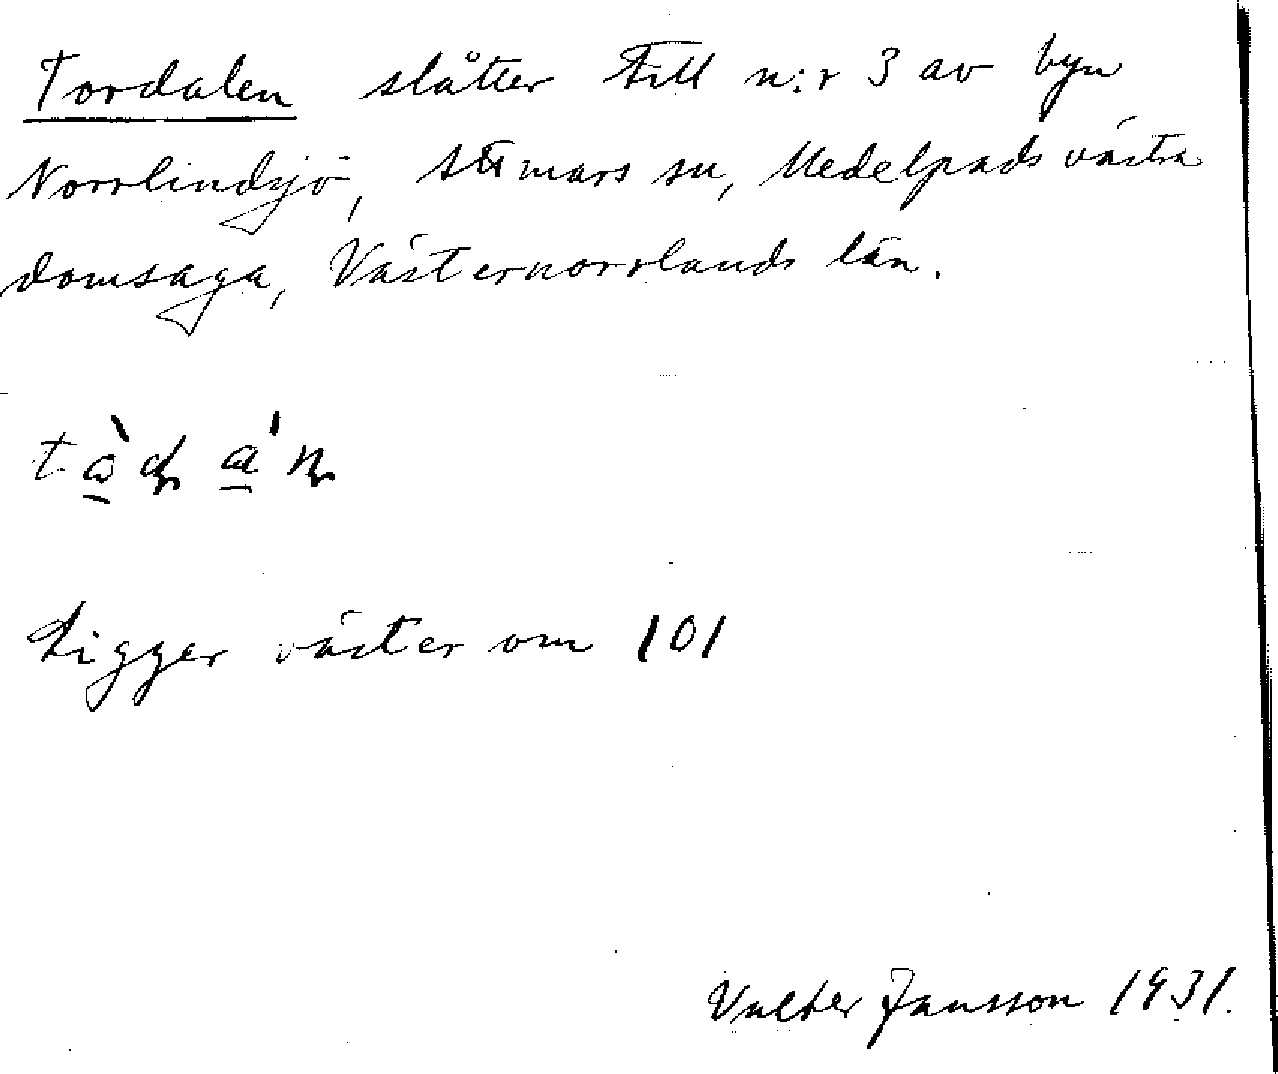 Tordalen slåtter till n:r 3 av byn
Norrlindsjö, Attmars sn, Medelpads västra
domsaga, Västernorrlands län.
Ligger väster om 101
Valter Jansson 1931.